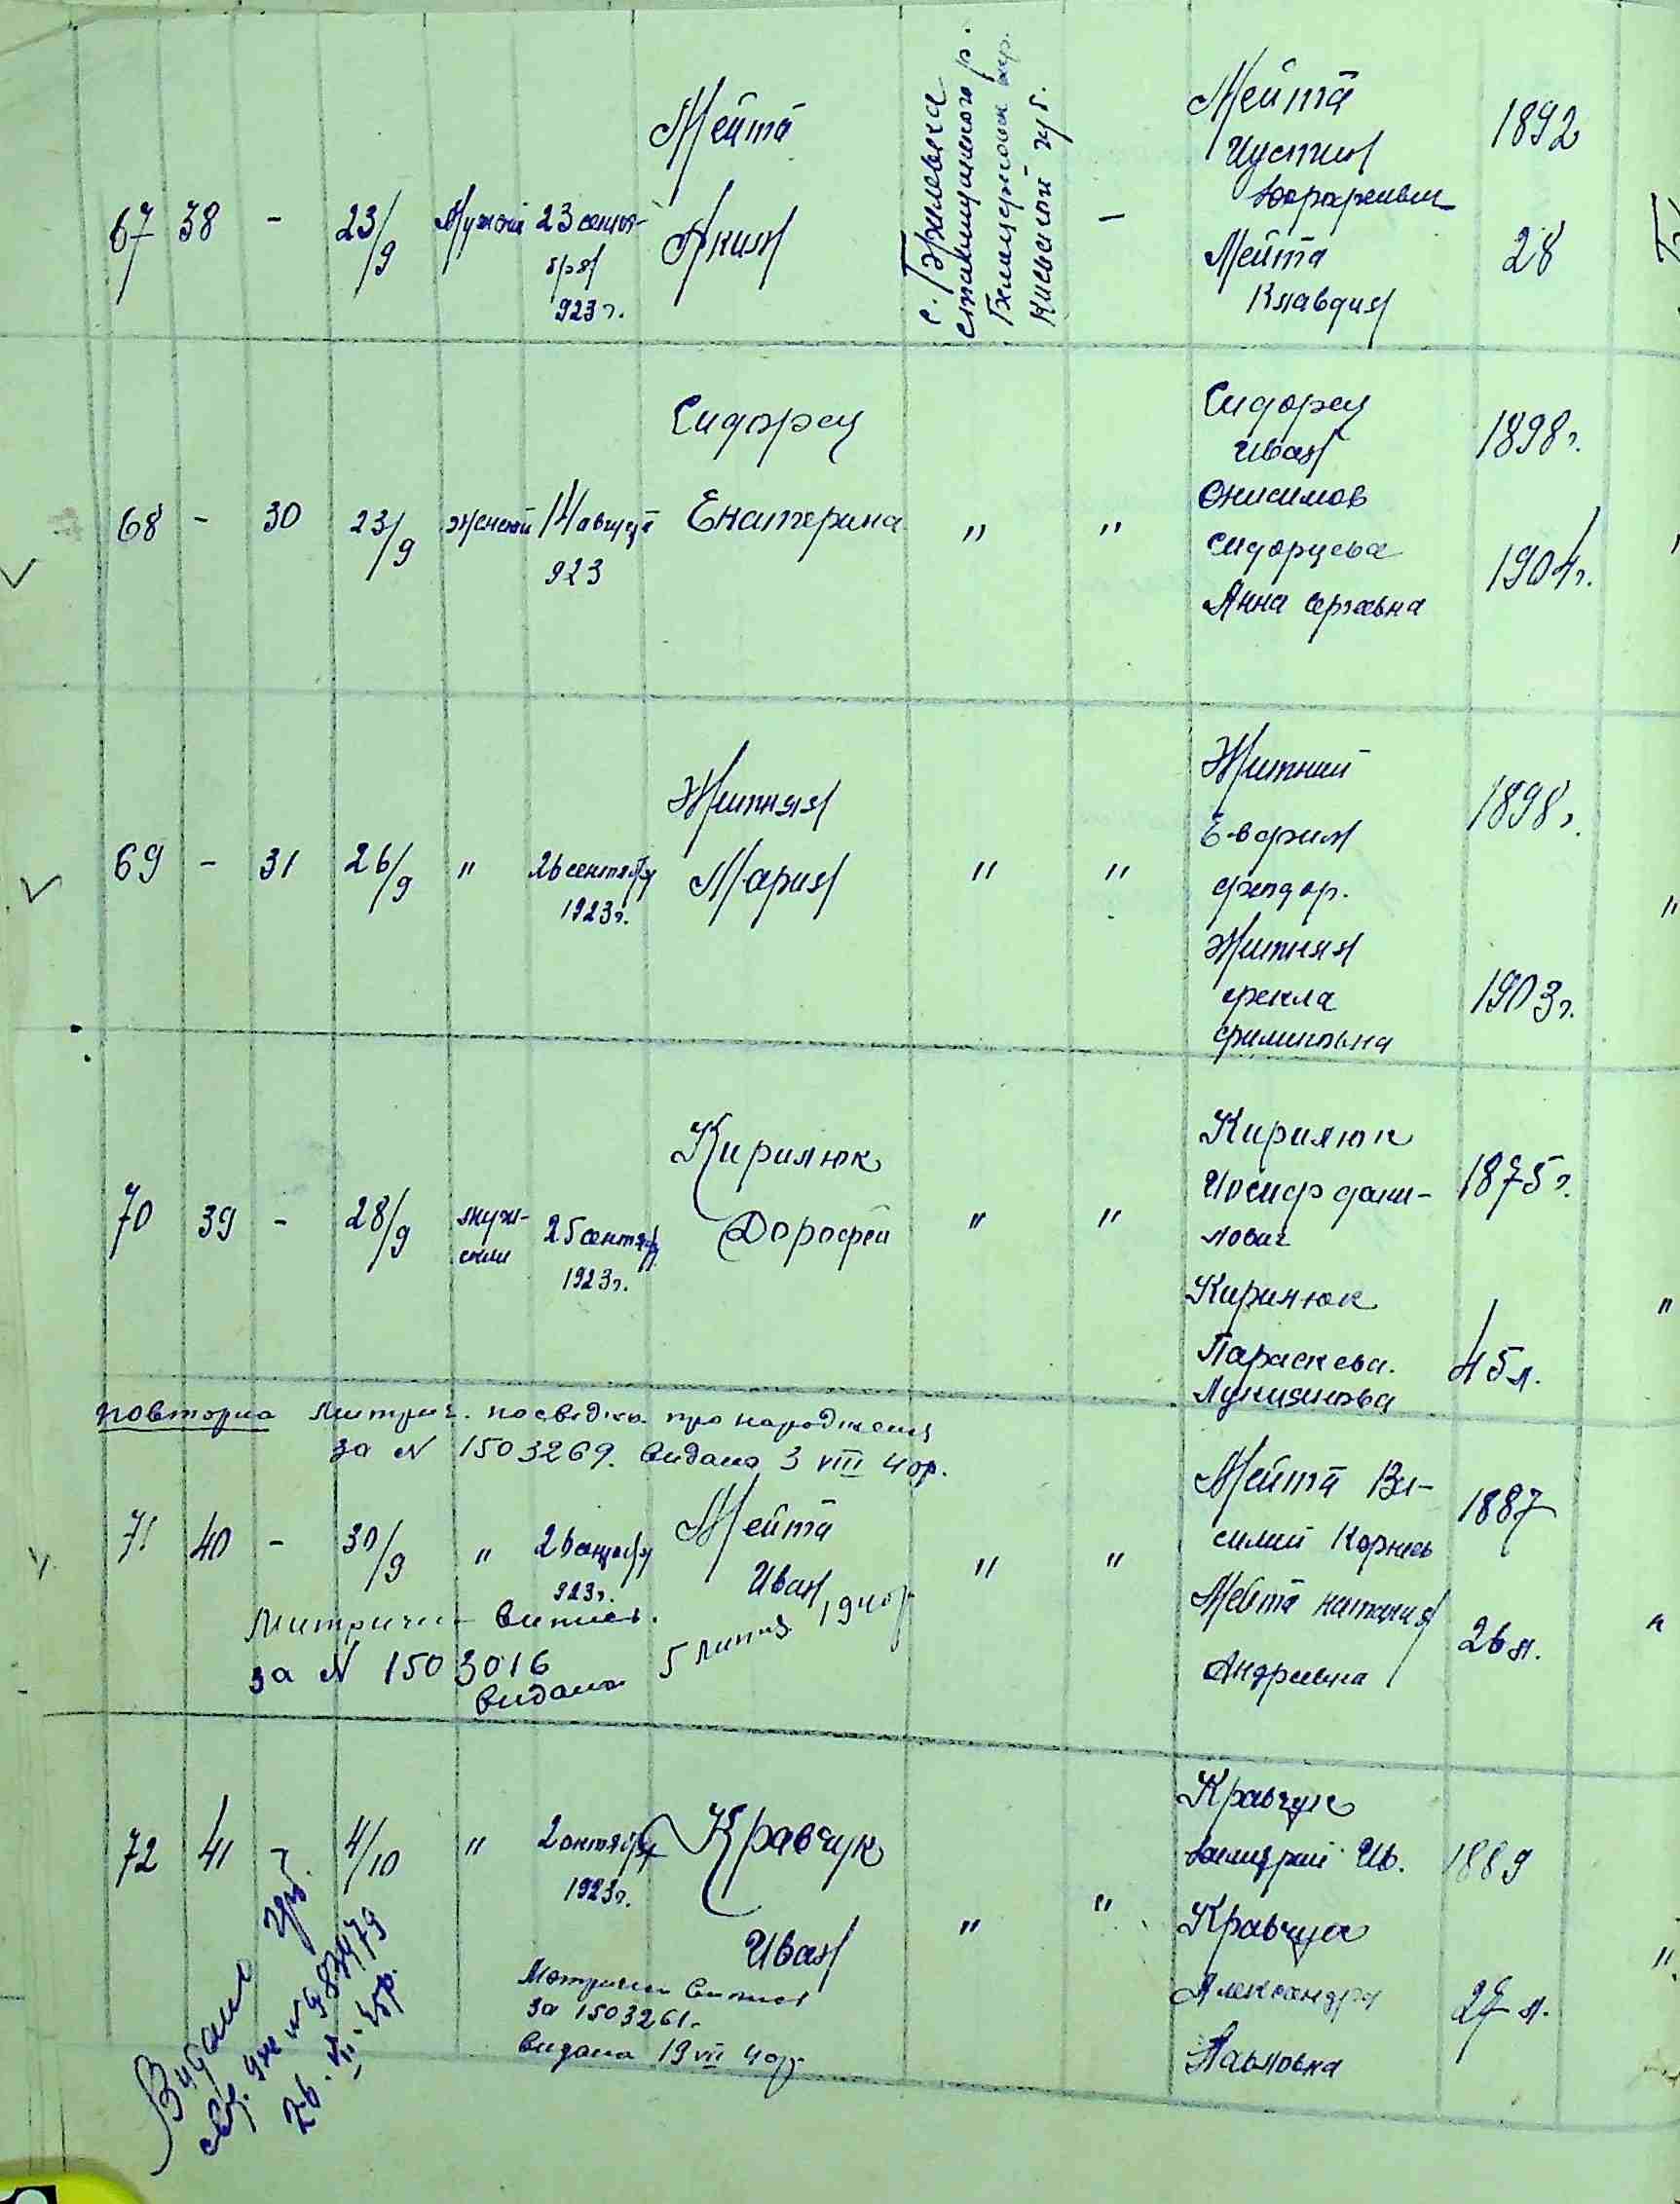 67 38 - 23/9 Мужской 23 сентя-
бря
923 г.
Мейта
Яким
с.
Ставищанского р.
Киевской губ.
-
Мейта
Иустин
1892
Мейта
Клавдия
28
68 - 30 23/9 женский 14 августа
923
Сидорец
Екатерина
" "
Сидорец
Иван
Онисимов
1898 г.
Сидорцева
Анна
1904 г.
69 - 31 26/9 " 26 сентября
1923 г.
Житняя
Мария
" "
Житний
Евфим
федор.
1898 г.
Житняя
фекла
филиповна
1903 г.
"
70 39 - 28/9 муж-
ский
25 сентября
1923 г.
Кирилюк
Дорофей
" "
Кирилюк
Иосиф дани-
лович
1875 г.
Кирилюк
Параскева.
45 л.
"
повторно метрич. посвідка про народження
за N 1503269. видано 3 VIII 40р.
71 40 - 30/9 " 26
923 г.
Мейта
Иван
" "
Мейта Ва-
силий Корнеев
1887
Мейта наталия
Андреевна
26 л.
Метричн. випись.
за N 1503016
видано 5 липня 1940р.
72 41 - 4/10 " 2 октября
1923 г.
Кравчук
Иван
" "
Кравчук
Ив.
1889
Кравчук
Александра
Павловна
27 л.
"
Метричн випись
за 1503261.
видана 19 VII 40р.
Видано